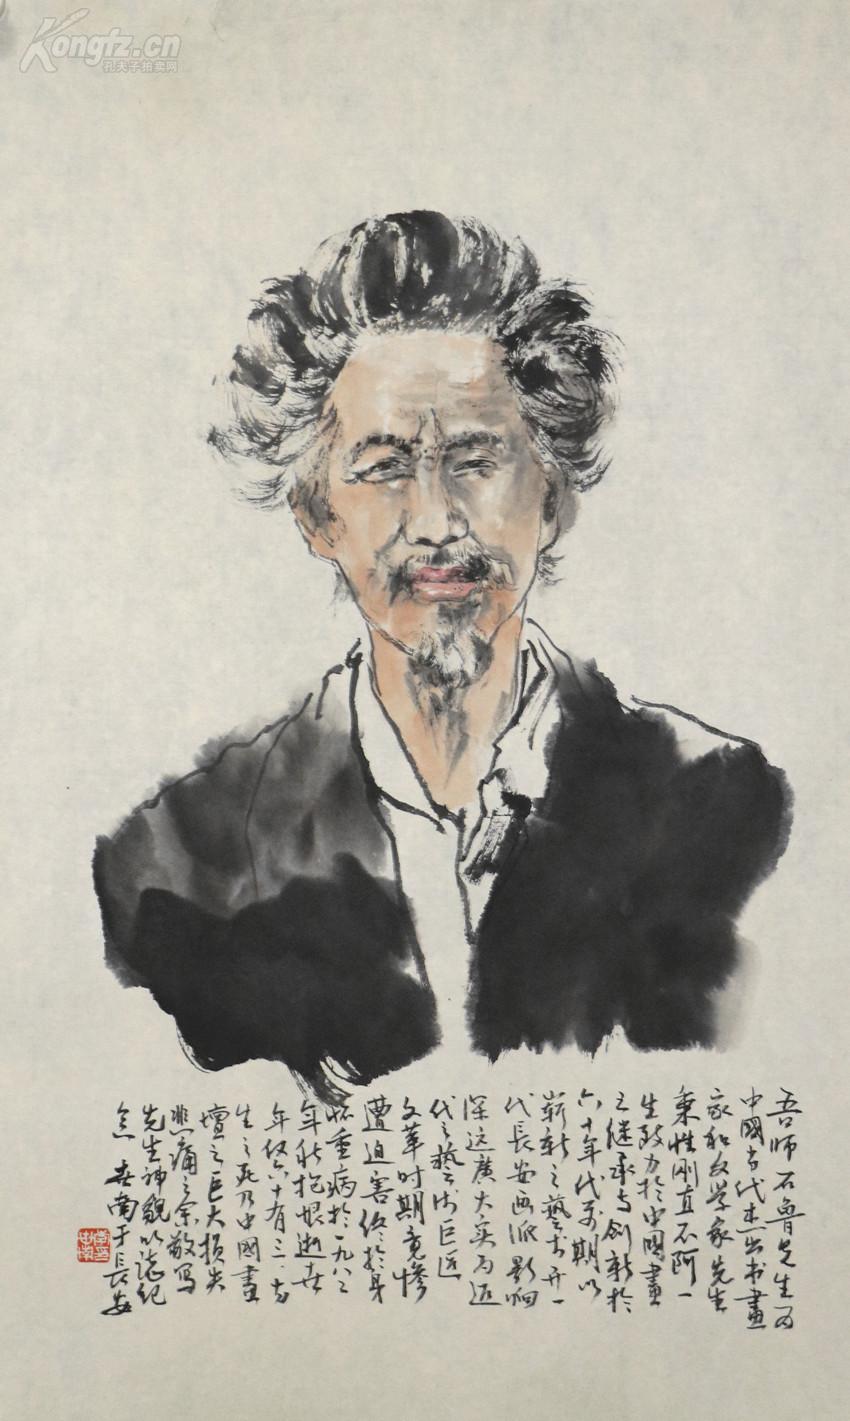 Kongfz.cn
孔夫子拍卖网
吾师石鲁先生为
中國当代杰出书畫
家和文学家先生
秉性刚直不阿一
生致力於中國畫
之继承与创新於
六十年代早期以
崭新之藝术开一
代長安画派影响
深远廣大实为近
代之藝术巨匠
文革时期竟惨
遭迫害终於身
怀重病於一九八二
年秋抱恨逝世
年仅六十有三
生之死乃中國畫
壇之巨大损失
悲痛之余敬写
先生神貌以誌纪
念 世南于長安